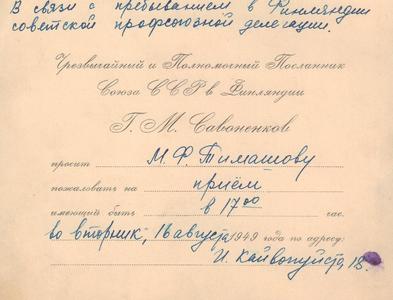 В связи с пребыванием в Финляндии
советской профсоюзной делегации.
Чрезвычайный и Полномочный Посланник
Союза ССР в Финляндии
Г. М. Савоненков
просит М. Ф. Тимашову
пожаловать на приём
имеющий быть в 17 00 час.
во вторник, 16 августа 1949 года по адресу:
И. Кайвопуйсто, 18.